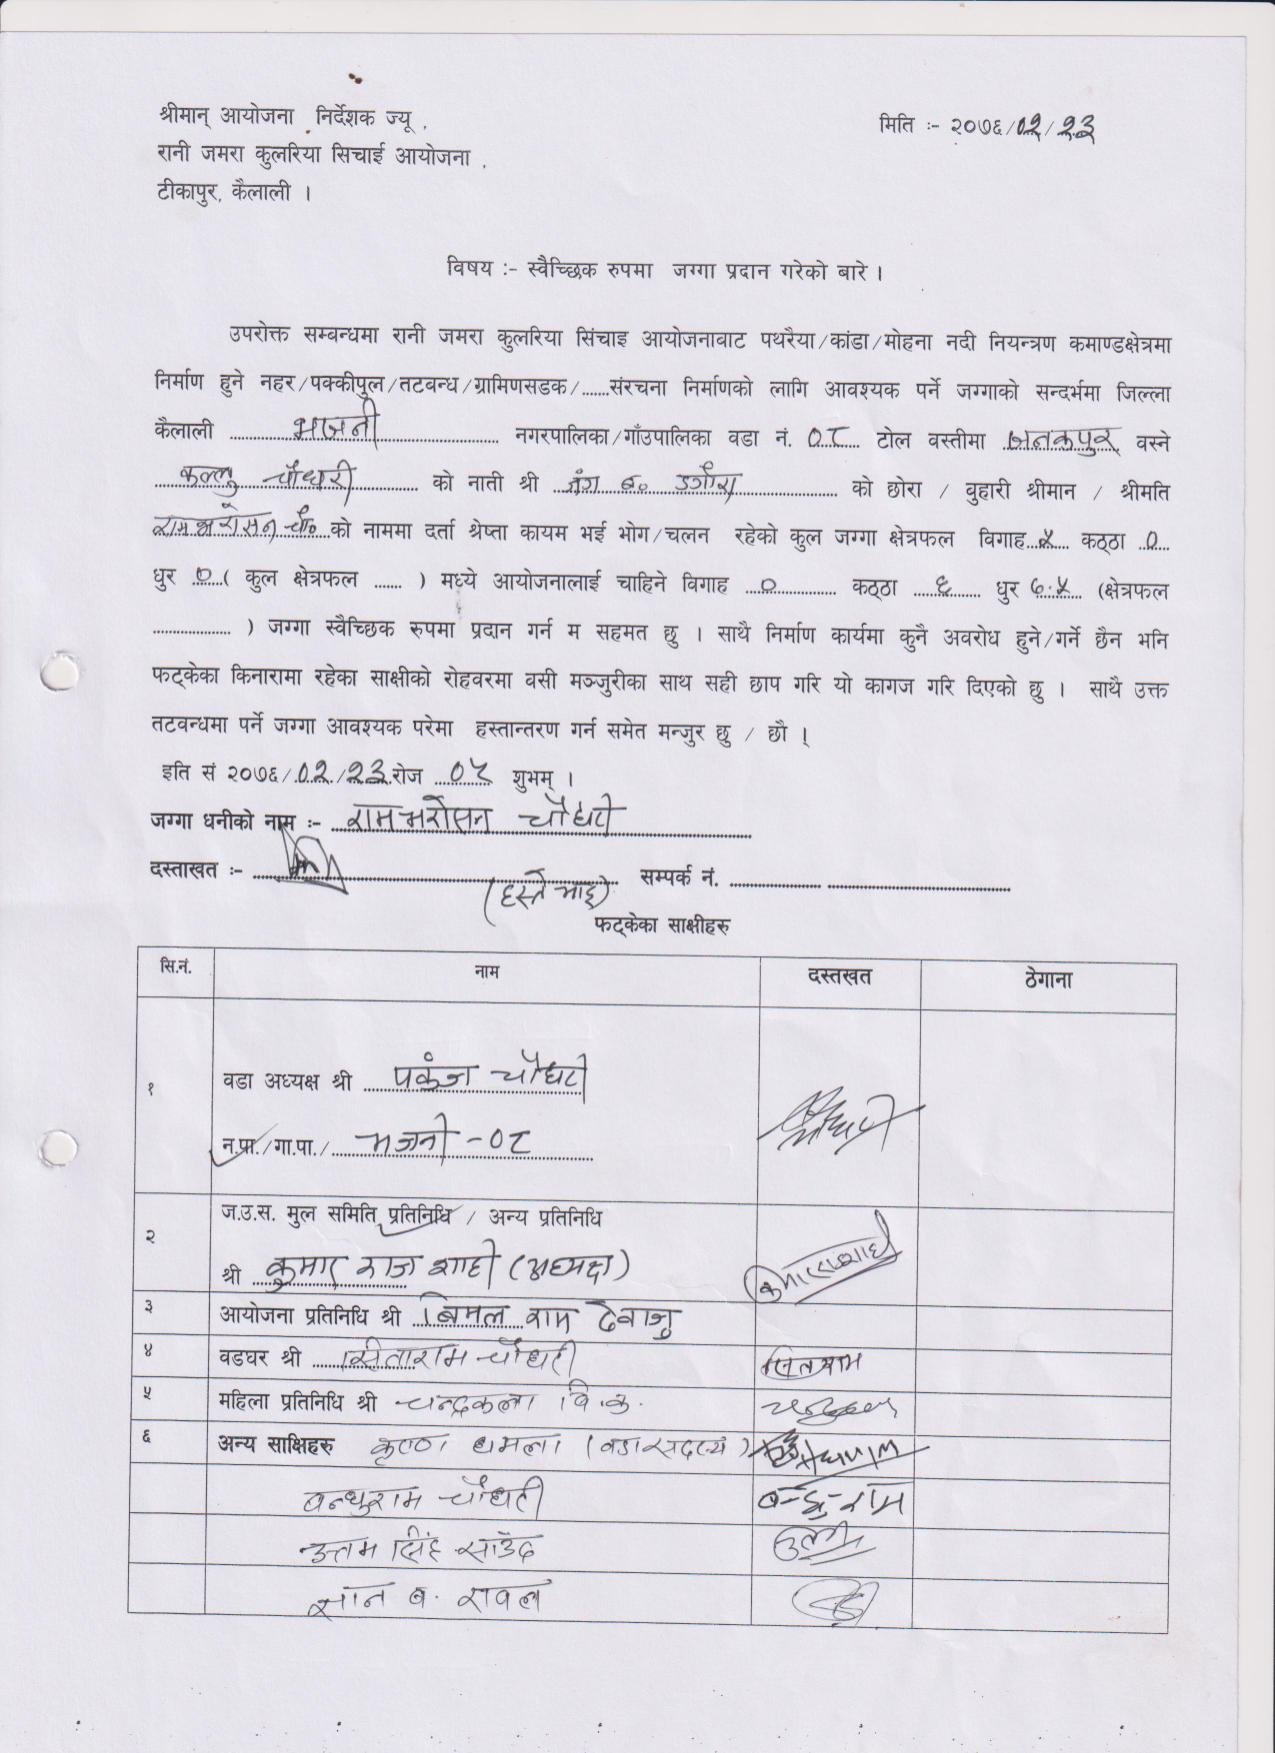 श्रीमान् आयोजना निर्देशक ज्यू ,
मिति :- २०७६/02/23
रानी जमरा कुलरिया सिचाई आयोजना .
टीकापुर, कैलाली ।
विषय :- स्वैच्छिक रुपमा जग्गा प्रदान गरेको बारे ।
उपरोक्त सम्बन्धमा रानी जमरा कुलरिया सिंचाइ आयोजनाबाट पथरैया/कांडा/मोहना नदी नियन्त्रण कमाण्डक्षेत्रमा
निर्माण हुने नहर/पक्कीपुल/तटबन्ध/ग्रामिणसडक/......संरचना निर्माणको लागि आवश्यक पर्ने जग्गाको सन्दर्भमा जिल्ला
कैलाली भजनी नगरपालिका/गाँउपालिका वडा नं. ०८ टोल वस्तीमा जनकपुर वस्ने
कल्लु चौधरी को नाती श्री जंग ब० डगौरा को छोरा / बुहारी श्रीमान / श्रीमति
रामभरोसन चौ० को नाममा दर्ता श्रेष्ता कायम भई भोग/चलन रहेको कुल जग्गा क्षेत्रफल विगाह ५ कठ्ठा ०
धुर ० ( कुल क्षेत्रफल ...... ) मध्ये आयोजनालाई चाहिने विगाह ० कठ्ठा ६ धुर ७.५ (क्षेत्रफल
.................. ) जग्गा स्वैच्छिक रुपमा प्रदान गर्न म सहमत छु । साथै निर्माण कार्यमा कुनै अवरोध हुने/गर्ने छैन भनि
फट्केका किनारामा रहेका साक्षीको रोहवरमा वसी मञ्जुरीका साथ सही छाप गरि यो कागज गरि दिएको छु । साथै उक्त
तटवन्धमा पर्ने जग्गा आवश्यक परेमा हस्तान्तरण गर्न समेत मन्जुर छु / छौ ।
इति सं २०७६/02/23 रोज ०५ शुभम् ।
जग्गा धनीको नाम :- रामभरोसन चौधरी
दस्ताखत :- सम्पर्क नं. ....................
(हस्ते भाइ)
फट्केका साक्षीहरु
सि.नं. नाम दस्तखत ठेगाना
१ वडा अध्यक्ष श्री पकंज चौधरी
न.पा./गा.पा./ भजनी -०८
२ ज.उ.स. मुल समिति प्रतिनिधि / अन्य प्रतिनिधि
श्री कुमार राज शाही (अध्यक्ष)
३ आयोजना प्रतिनिधि श्री बिमल राम देवाजु
४ वडघर श्री सिताराम चौधरी सिताराम
५ महिला प्रतिनिधि श्री चन्द्रकला वि.क.
६ अन्य साक्षिहरु कृष्ण धमला (वडा सदस्य)
बन्धुराम चौधरी बन्धु राम
उत्तम सिंह साउँद
मान ब. रावल